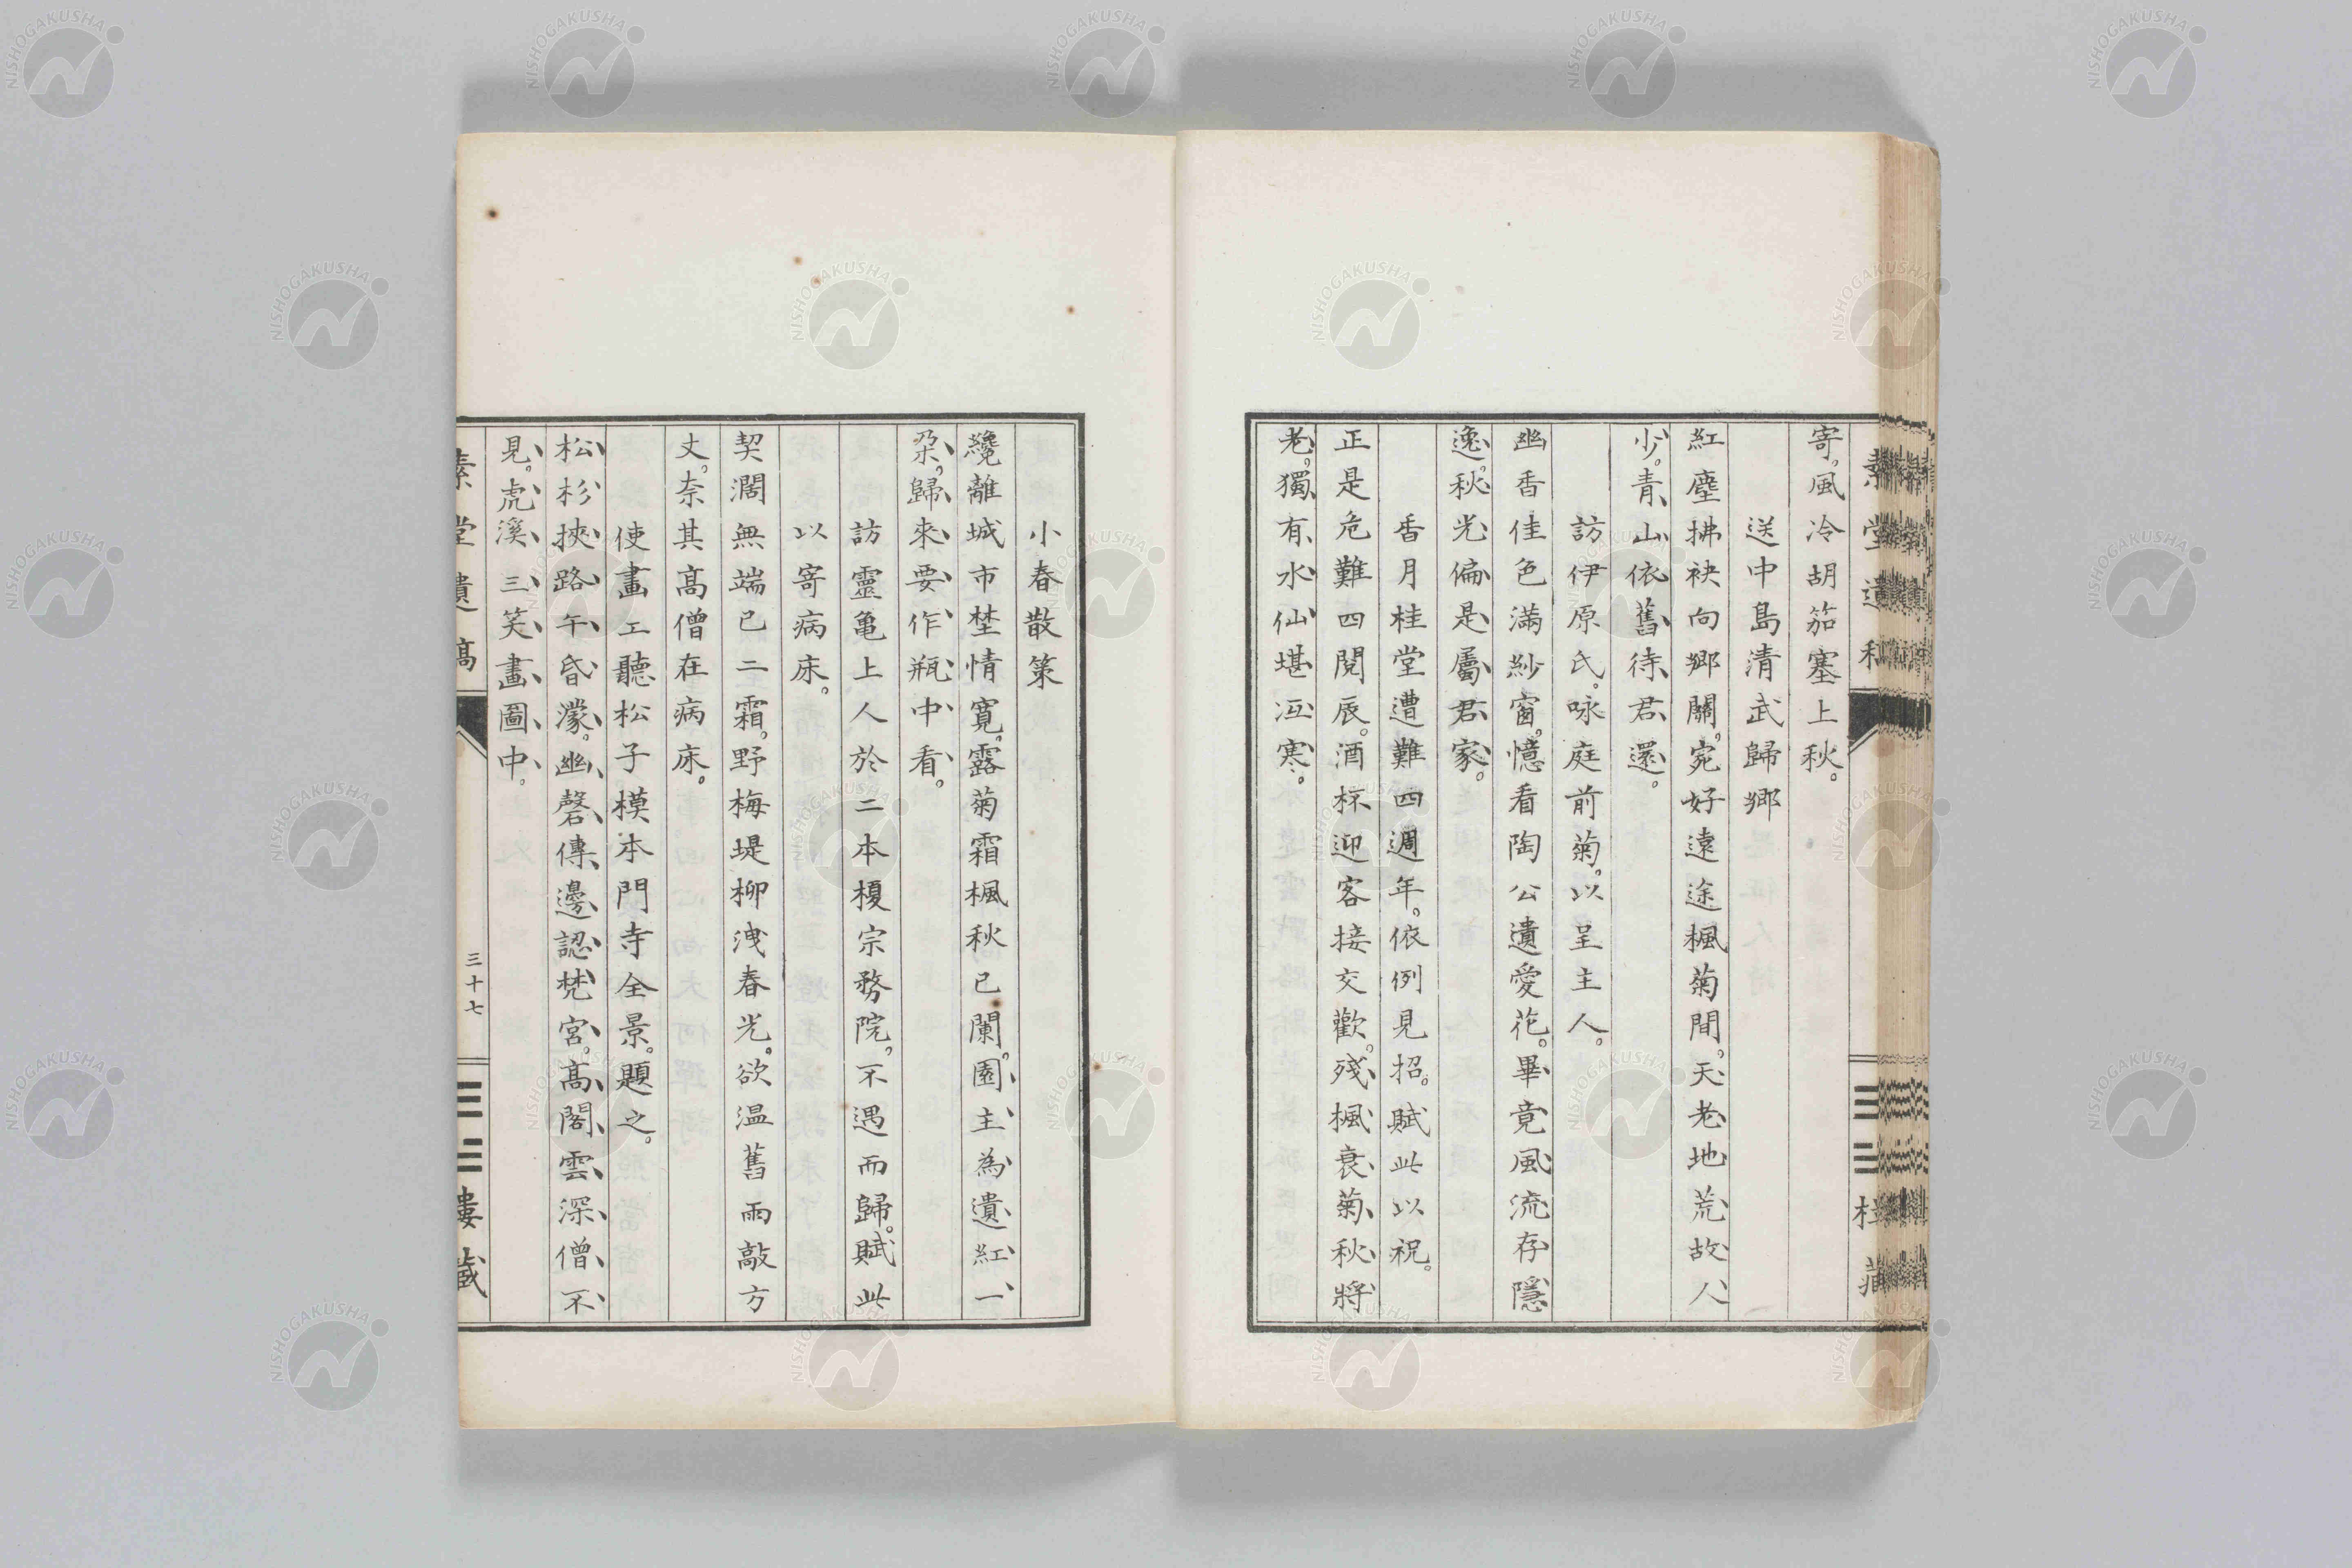 寄。風冷胡笳塞上秋。
送中島清武歸郷
紅塵拂袂向郷關。宛好遠途楓菊間。天老地荒故人
少。青山依舊待君還。
訪伊原氏。咏庭前菊。以呈主人。
幽香佳色滿紗窗。憶看陶公遺愛花。畢竟風流存隱
逸。秋光偏是屬君家。
香月桂堂遭難四週年。依例見招。賦此以祝。
正是危難四閲辰。酒杯迎客接交歡。殘楓衰菊秋將
老。獨有水仙堪冱寒。
小春散策
纔離城市埜情寛。露菊霜楓秋已闌。園主為遺紅一
朶。歸來要作瓶中看。
訪靈亀上人於二本榎宗務院。不遇而歸。賦此
以寄病床。
契濶無端已二霜。野梅堤柳洩春光。欲温舊雨敲方
丈。奈其高僧在病床。
使畫工聽松子模本門寺全景。題之。
松杉挾路午昏濛。幽磬傳邊認梵宮。高閣雲深僧不
見。虎溪三笑畫圖中。
素堂遺稿
三十七
三三樓藏
NISHOGAKUSHA